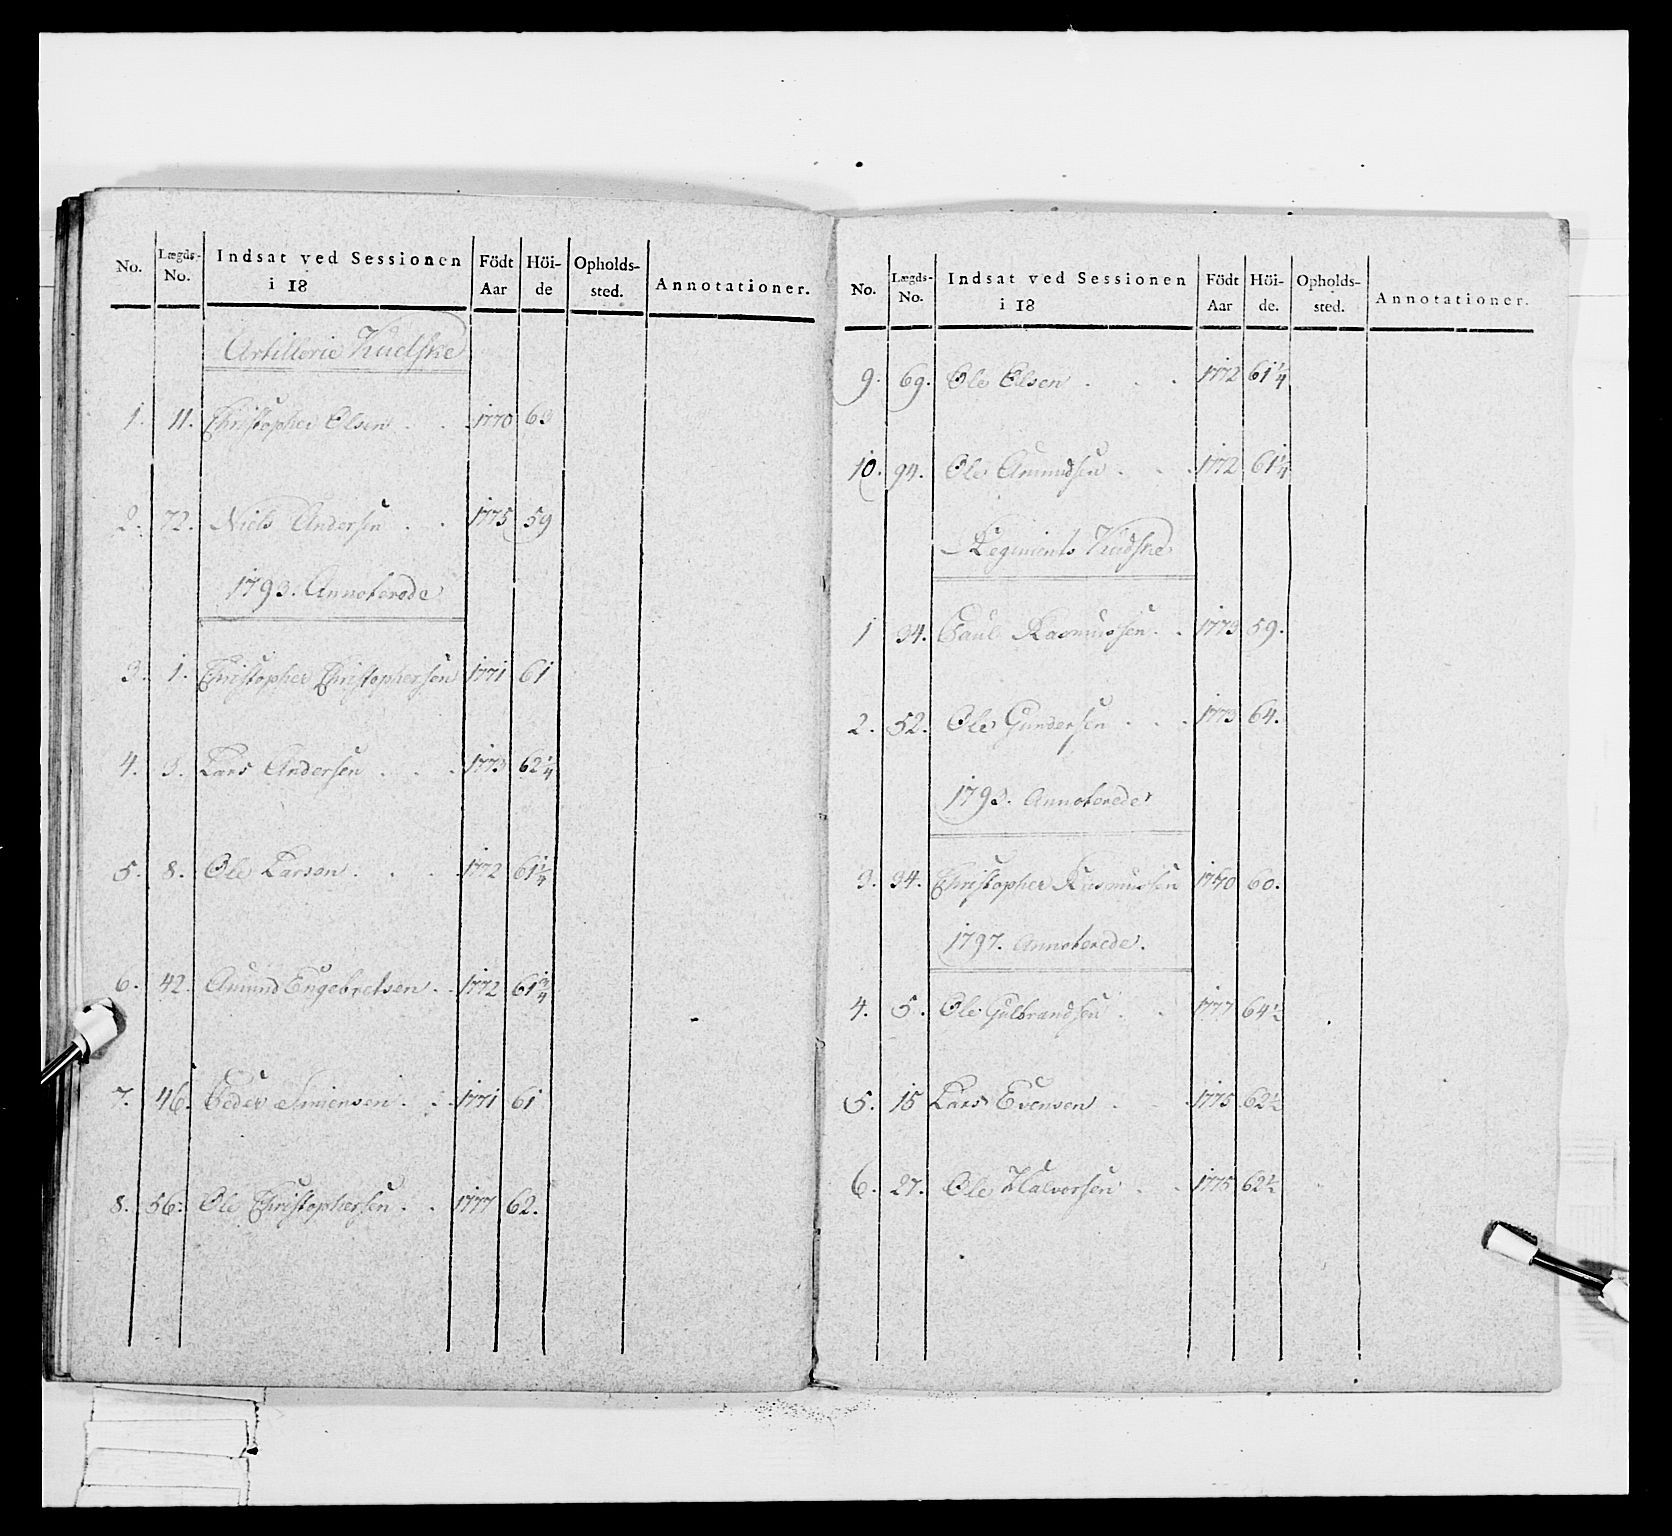 No. Lægds-No. Indsat ved Sessionen i 18 Födt Aar Höi-de Opholds-sted. Annotationer.
Artillerie Kudske
1. 11. Christopher Olsen . . 1770 63
2. 72. Niels Andersen . . 1775 59
1793. Annoterede
3. 1. Christopher Christophersen 1771 61
4. 3. Lars Andersen . . . 1773 62 1/4
5. 8. Ole Larsen . . . 1772 61 1/4
6. 42. Amund Engebretsen . . 1772 61 3/4
7. 46. Peder Simensen . . 1771 61
8. 56. Ole Christophersen . . 1777 62.
No. Lægds-No. Indsat ved Sessionen i 18 Födt Aar Höi-de. Opholds-sted. Annotationer.
9. 69. Ole Olsen . . . 1772 61 1/4
10. 94. Ole Amundsen . . . 1772 61 1/4
Regiments Kudske
1 34. Paul Rasmussen . . 1773 59.
2. 52. Ole Gundersen . . . 1773 64.
1793. Annoterede
3. 34. Christopher Rasmussen 1770 60.
1797. Annoterede.
4. 5. Ole Gulbrandsen . . 1777 64 1/2
5. 15 Lars Evensen . . . 1775 62 1/2
6. 27. Ole Halvorsen . . 1775 62 1/2